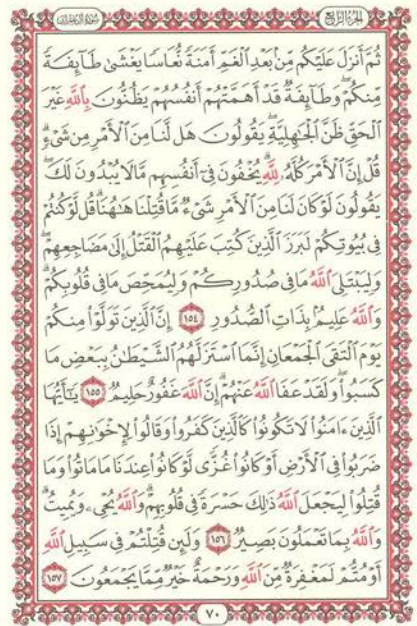 سورة آل عمران
الجزء الرابع
ثُمَّ أَنزَلَ عَلَيْكُم مِّنۢ بَعْدِ ٱلْغَمِّ أَمَنَةً نُّعَاسًا يَغْشَىٰ طَآئِفَةً
مِّنكُمْ ۖ وَطَآئِفَةٌ قَدْ أَهَمَّتْهُمْ أَنفُسُهُمْ يَظُنُّونَ بِٱللَّهِ غَيْرَ
ٱلْحَقِّ ظَنَّ ٱلْجَٰهِلِيَّةِ ۖ يَقُولُونَ هَل لَّنَا مِنَ ٱلْأَمْرِ مِن شَىْءٍ ۗ
قُلْ إِنَّ ٱلْأَمْرَ كُلَّهُۥ لِلَّهِ ۗ يُخْفُونَ فِىٓ أَنفُسِهِم مَّا لَا يُبْدُونَ لَكَ ۖ
يَقُولُونَ لَوْ كَانَ لَنَا مِنَ ٱلْأَمْرِ شَىْءٌ مَّا قُتِلْنَا هَٰهُنَا ۗ قُل لَّوْ كُنتُمْ
فِى بُيُوتِكُمْ لَبَرَزَ ٱلَّذِينَ كُتِبَ عَلَيْهِمُ ٱلْقَتْلُ إِلَىٰ مَضَاجِعِهِمْ ۖ
وَلِيَبْتَلِىَ ٱللَّهُ مَا فِى صُدُورِكُمْ وَلِيُمَحِّصَ مَا فِى قُلُوبِكُمْ ۗ
وَٱللَّهُ عَلِيمٌۢ بِذَاتِ ٱلصُّدُورِ ١٥٤ إِنَّ ٱلَّذِينَ تَوَلَّوْا۟ مِنكُمْ
يَوْمَ ٱلْتَقَى ٱلْجَمْعَانِ إِنَّمَا ٱسْتَزَلَّهُمُ ٱلشَّيْطَٰنُ بِبَعْضِ مَا
كَسَبُوا۟ ۖ وَلَقَدْ عَفَا ٱللَّهُ عَنْهُمْ ۗ إِنَّ ٱللَّهَ غَفُورٌ حَلِيمٌ ١٥٥ يَٰٓأَيُّهَا
ٱلَّذِينَ ءَامَنُوا۟ لَا تَكُونُوا۟ كَٱلَّذِينَ كَفَرُوا۟ وَقَالُوا۟ لِإِخْوَٰنِهِمْ إِذَا
ضَرَبُوا۟ فِى ٱلْأَرْضِ أَوْ كَانُوا۟ غُزًّى لَّوْ كَانُوا۟ عِندَنَا مَا مَاتُوا۟ وَمَا
قُتِلُوا۟ لِيَجْعَلَ ٱللَّهُ ذَٰلِكَ حَسْرَةً فِى قُلُوبِهِمْ ۗ وَٱللَّهُ يُحْىِۦ وَيُمِيتُ ۗ
وَٱللَّهُ بِمَا تَعْمَلُونَ بَصِيرٌ ١٥٦ وَلَئِن قُتِلْتُمْ فِى سَبِيلِ ٱللَّهِ
أَوْ مُتُّمْ لَمَغْفِرَةٌ مِّنَ ٱللَّهِ وَرَحْمَةٌ خَيْرٌ مِّمَّا يَجْمَعُونَ ١٥٧
٧٠